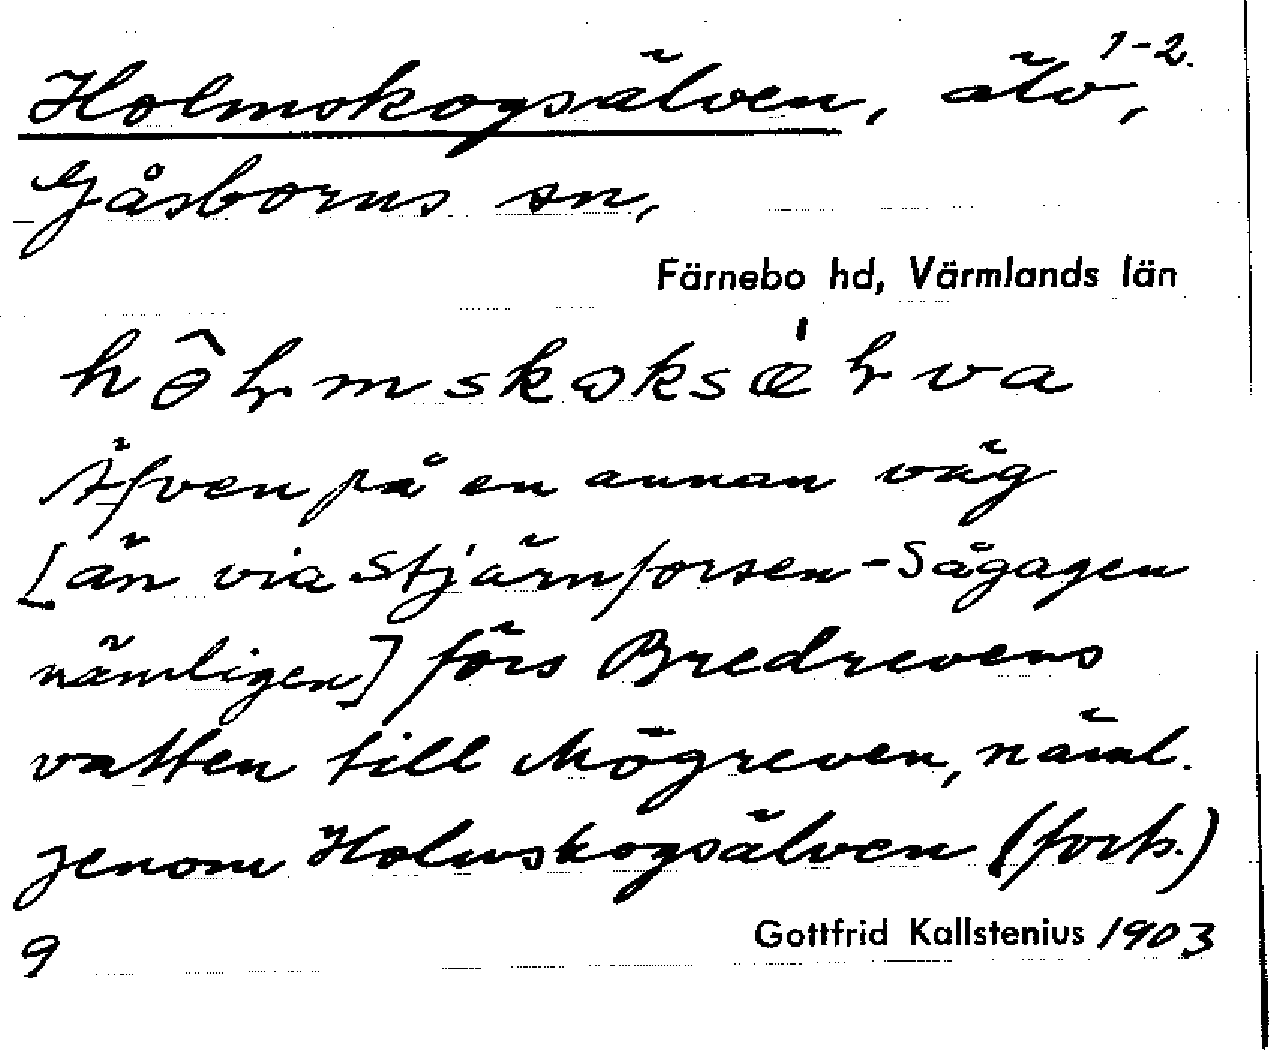 Holmskogsälven, älv, 1-2.
Gåsborns sn,
Färnebo hd, Värmlands län
Äfven på en annan väg
[än via Stjärnforsen-Sågagen
nämligen] förs Bredrevens
vatten till Mögreven, näml.
genom Holmskogsälven (forts.)
9 Gottfrid Kallstenius 1903